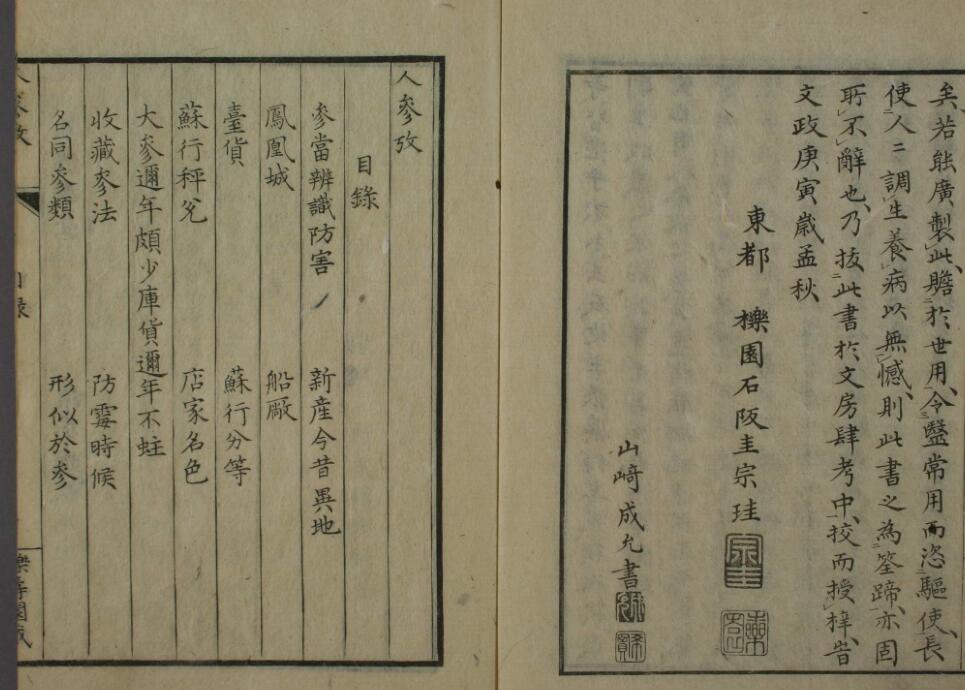 矣若能廣製此贍於世用令毉常用而恣驅使長
使人ニ調生養病以無憾則此書之為筌蹄亦固
所不辭也乃抜此書於文房肆考中挍而授梓旹
文政庚寅歳孟秋
東都 櫟園石阪圭宗珪
山﨑成允書
人參攷
目錄
參當辨識防害 新産今昔異地
鳳凰城 船厰
臺貨 蘇行分等
蘇行秤兌 店家名色
大參邇年頗少庫貨邇年不蛀
收藏參法 防霉時候
名同參類 形似於參
人參攷 目錄